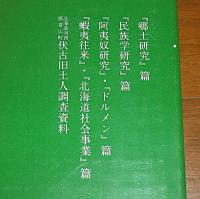 『郷土研究』篇
『民族学研究』篇
『阿夷奴研究』・『ドルメン』篇
『蝦夷往来』・『北海道社会事業』篇
伏古旧土人調査資料